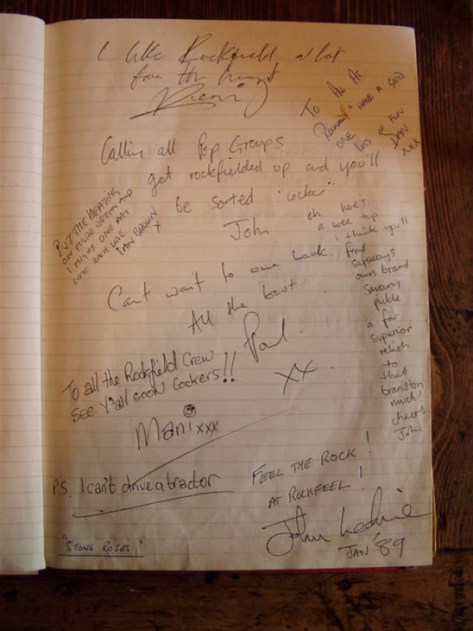 I like Rockfield a lot
from the heart
To All At
"HAVE A GOOD
ONE
IAN
XXX
Calling all Pop Groups
get rockfielded up and you'll
be sorted "cocker"
John
PUT THE HEATING
ON
I MIGHT ONE DAY
COME BACK
IAN BROWN
X
eh
a wee tip
I think you'll
find
Safeways
own brand
Savoury
pickle
a far
superior
relish
to
that
branston
much!
cheers
John
Can't wait to come back
All the best
Paul.
xx.
To all the Rockfield Crew
See Y'all soon Cockers!!
Mani xxx
P.S. I can't drive a tractor
FEEL THE ROCK!
AT ROCKFEEL!
John Leckie
JAN '89
"STONE ROSES"